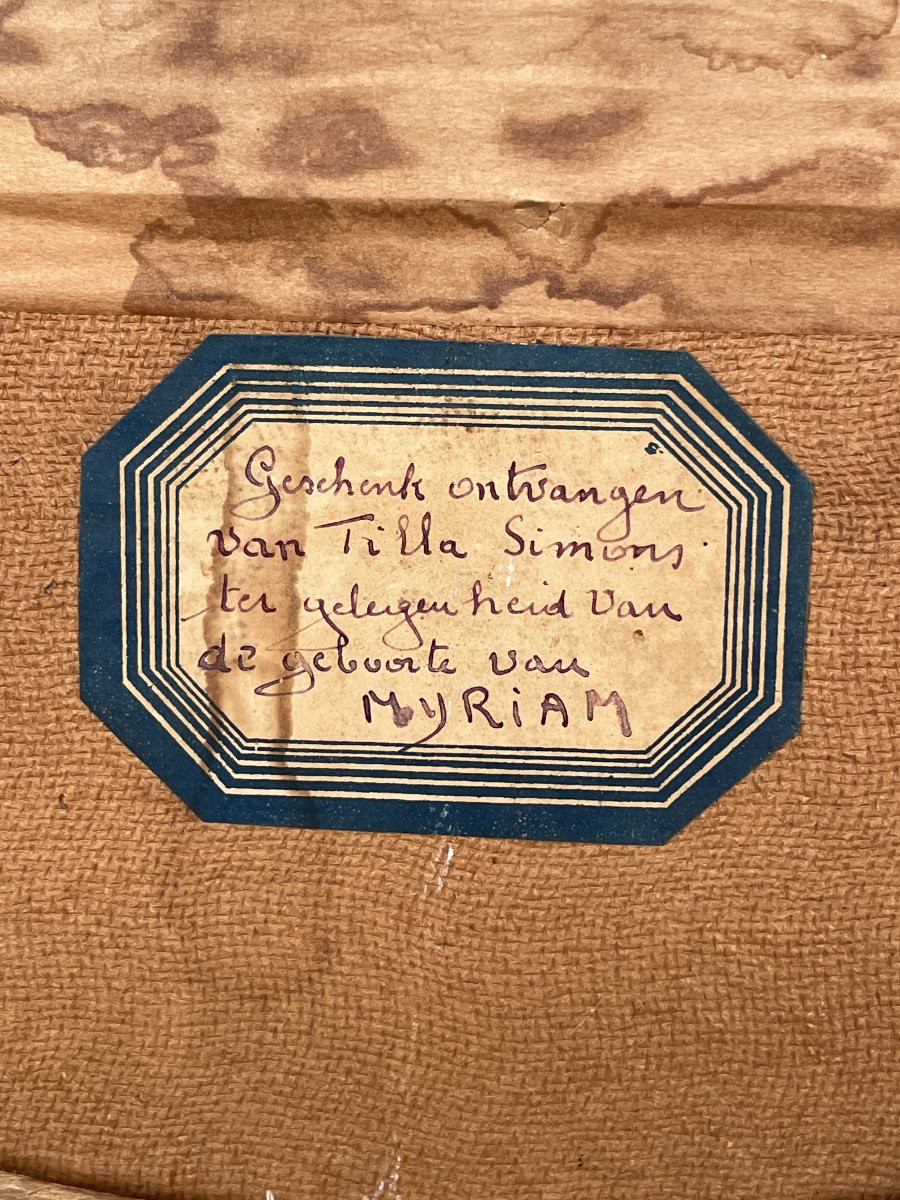 Geschenk ontvangen
van Tilla Simons.
ter gelegenheid van
de geboorte van
MYRiAM